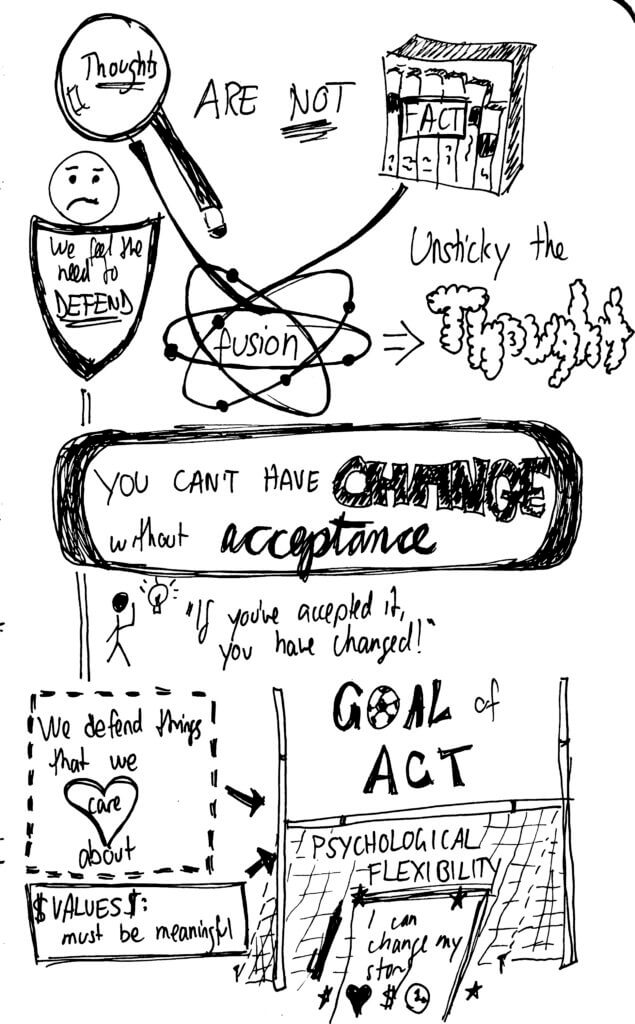 Thoughts
ARE NOT
FACT
We feel the
need to
DEFEND
fusion
Unsticky the
Thought
YOU CAN'T HAVE CHANGE
without acceptance
"If you've accepted it,
you have changed!"
We defend things
that we
care
about
$VALUES$:
must be meaningful
GOAL of
ACT
PSYCHOLOGICAL
FLEXIBILITY
I can
change my
story
$ $